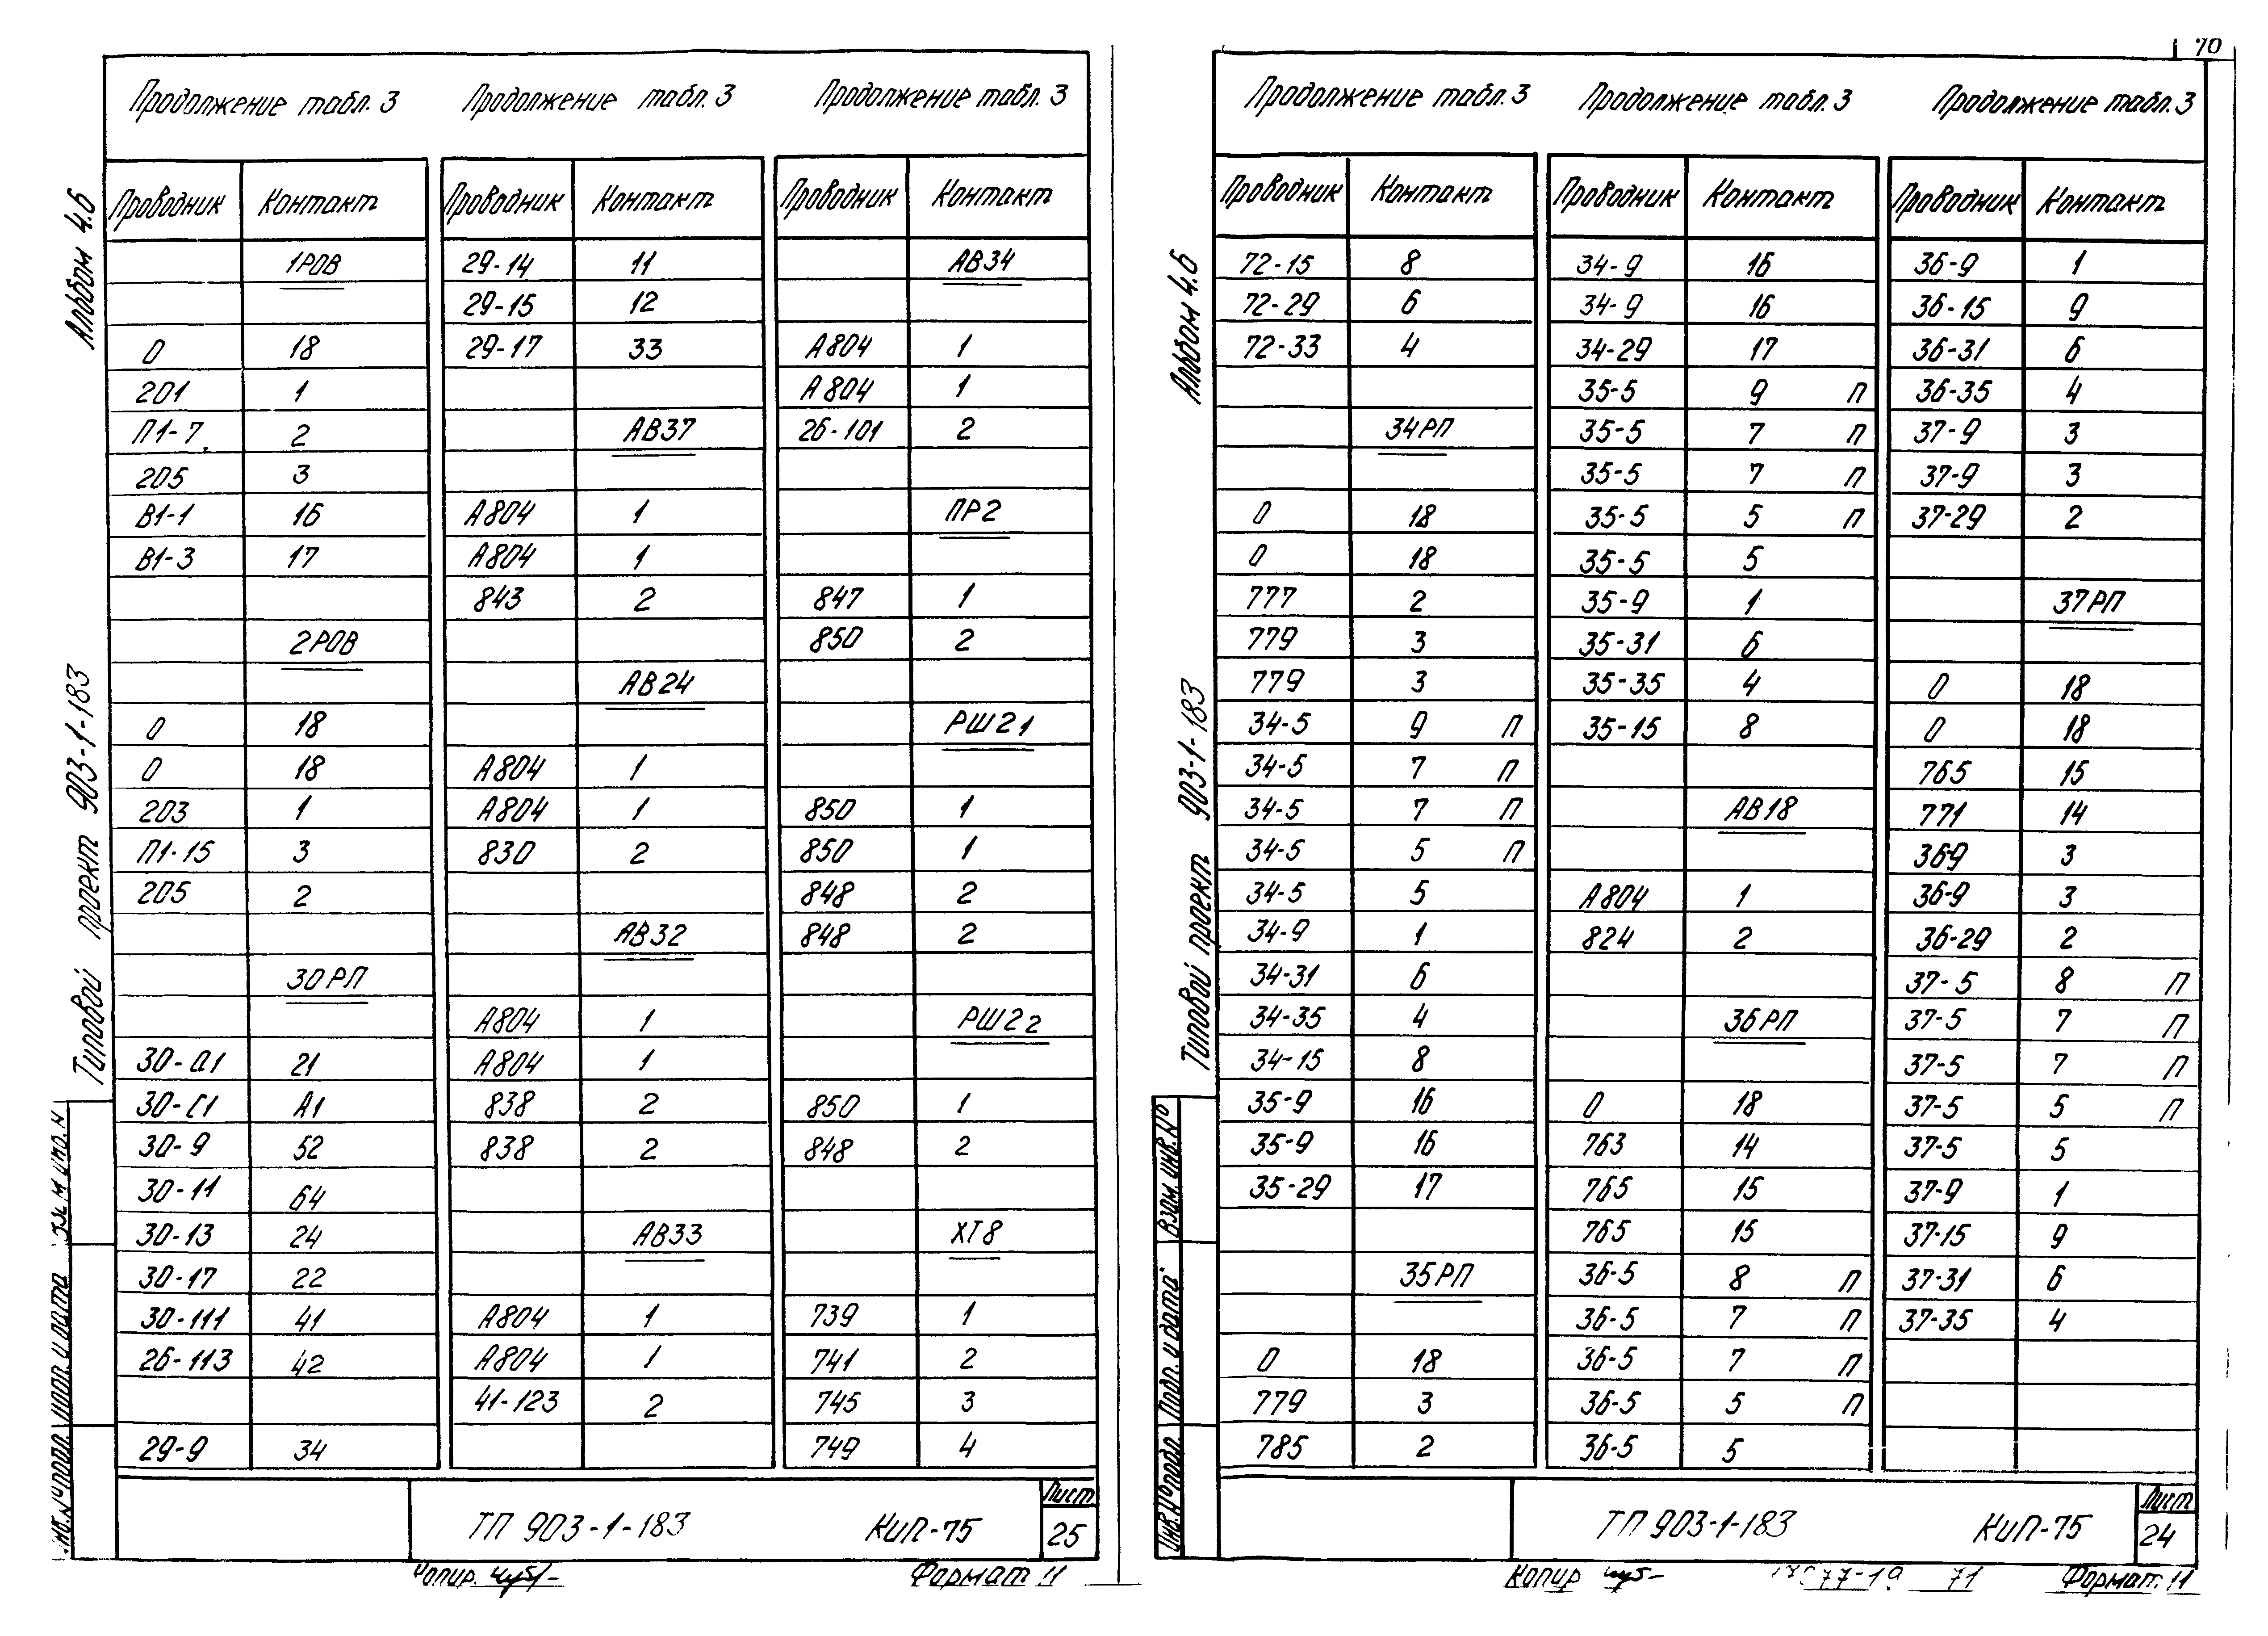 70
Альбом 4.6
Типовой проект 903-1-183
Продолжение табл. 3
Проводник Контакт
1РОВ
0 18
201 1
П1-7 2
205 3
В1-1 16
В1-3 17
2РОВ
0 18
0 18
203 1
П1-15 3
205 2
30РП
30-а1 21
30-С1 А1
30-9 52
30-11 64
30-13 24
30-17 22
30-111 41
26-113 42
29-9 34
Продолжение табл. 3
Проводник Контакт
29-14 11
29-15 12
29-17 33
АВ37
А804 1
А804 1
843 2
АВ24
А804 1
А804 1
830 2
АВ32
А804 1
А804 1
838 2
838 2
АВ33
А804 1
А804 1
41-123 2
Продолжение табл. 3
Проводник Контакт
АВ34
А804 1
А804 1
26-101 2
ПР2
847 1
850 2
РШ21
850 1
850 1
848 2
848 2
РШ22
850 1
848 2
ХТ8
739 1
741 2
745 3
749 4
ТП 903-1-183 КИП-75
Лист
25
Копир.
Формат 11
Альбом 4.6
Типовой проект 903-1-183
Взам. инв. №
Подп. и дата
Инв. № подл.
Продолжение табл. 3
Проводник Контакт
72-15 8
72-29 6
72-33 4
34РП
0 18
0 18
777 2
779 3
779 3
34-5 9 П
34-5 7 П
34-5 7 П
34-5 5 П
34-5 5
34-9 1
34-31 6
34-35 4
34-15 8
35-9 16
35-9 16
35-29 17
35РП
0 18
779 3
785 2
Продолжение табл. 3
Проводник Контакт
34-9 16
34-9 16
34-29 17
35-5 9 П
35-5 7 П
35-5 7 П
35-5 5 П
35-5 5
35-9 1
35-31 6
35-35 4
35-15 8
АВ18
А804 1
824 2
36РП
0 18
763 14
765 15
765 15
36-5 8 П
36-5 7 П
36-5 7 П
36-5 5 П
36-5 5
Продолжение табл. 3
Проводник Контакт
36-9 1
36-15 9
36-31 6
36-35 4
37-9 3
37-9 3
37-29 2
37РП
0 18
0 18
765 15
771 14
36-9 3
36-9 3
36-29 2
37-5 8 П
37-5 7 П
37-5 7 П
37-5 5 П
37-5 5
37-9 1
37-15 9
37-31 6
37-35 4
ТП 903-1-183 КИП-75
Лист
24
Копир
71
Формат 11